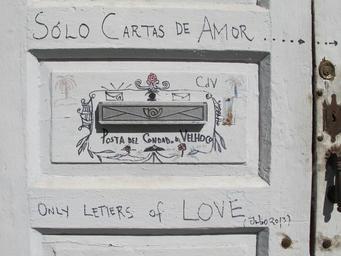 SÓLO CARTAS DE AMOR
CJV
POSTA DEL CONDADO DE VELHOCO
ONLY LETTERS of LOVE
(Julio 2013)